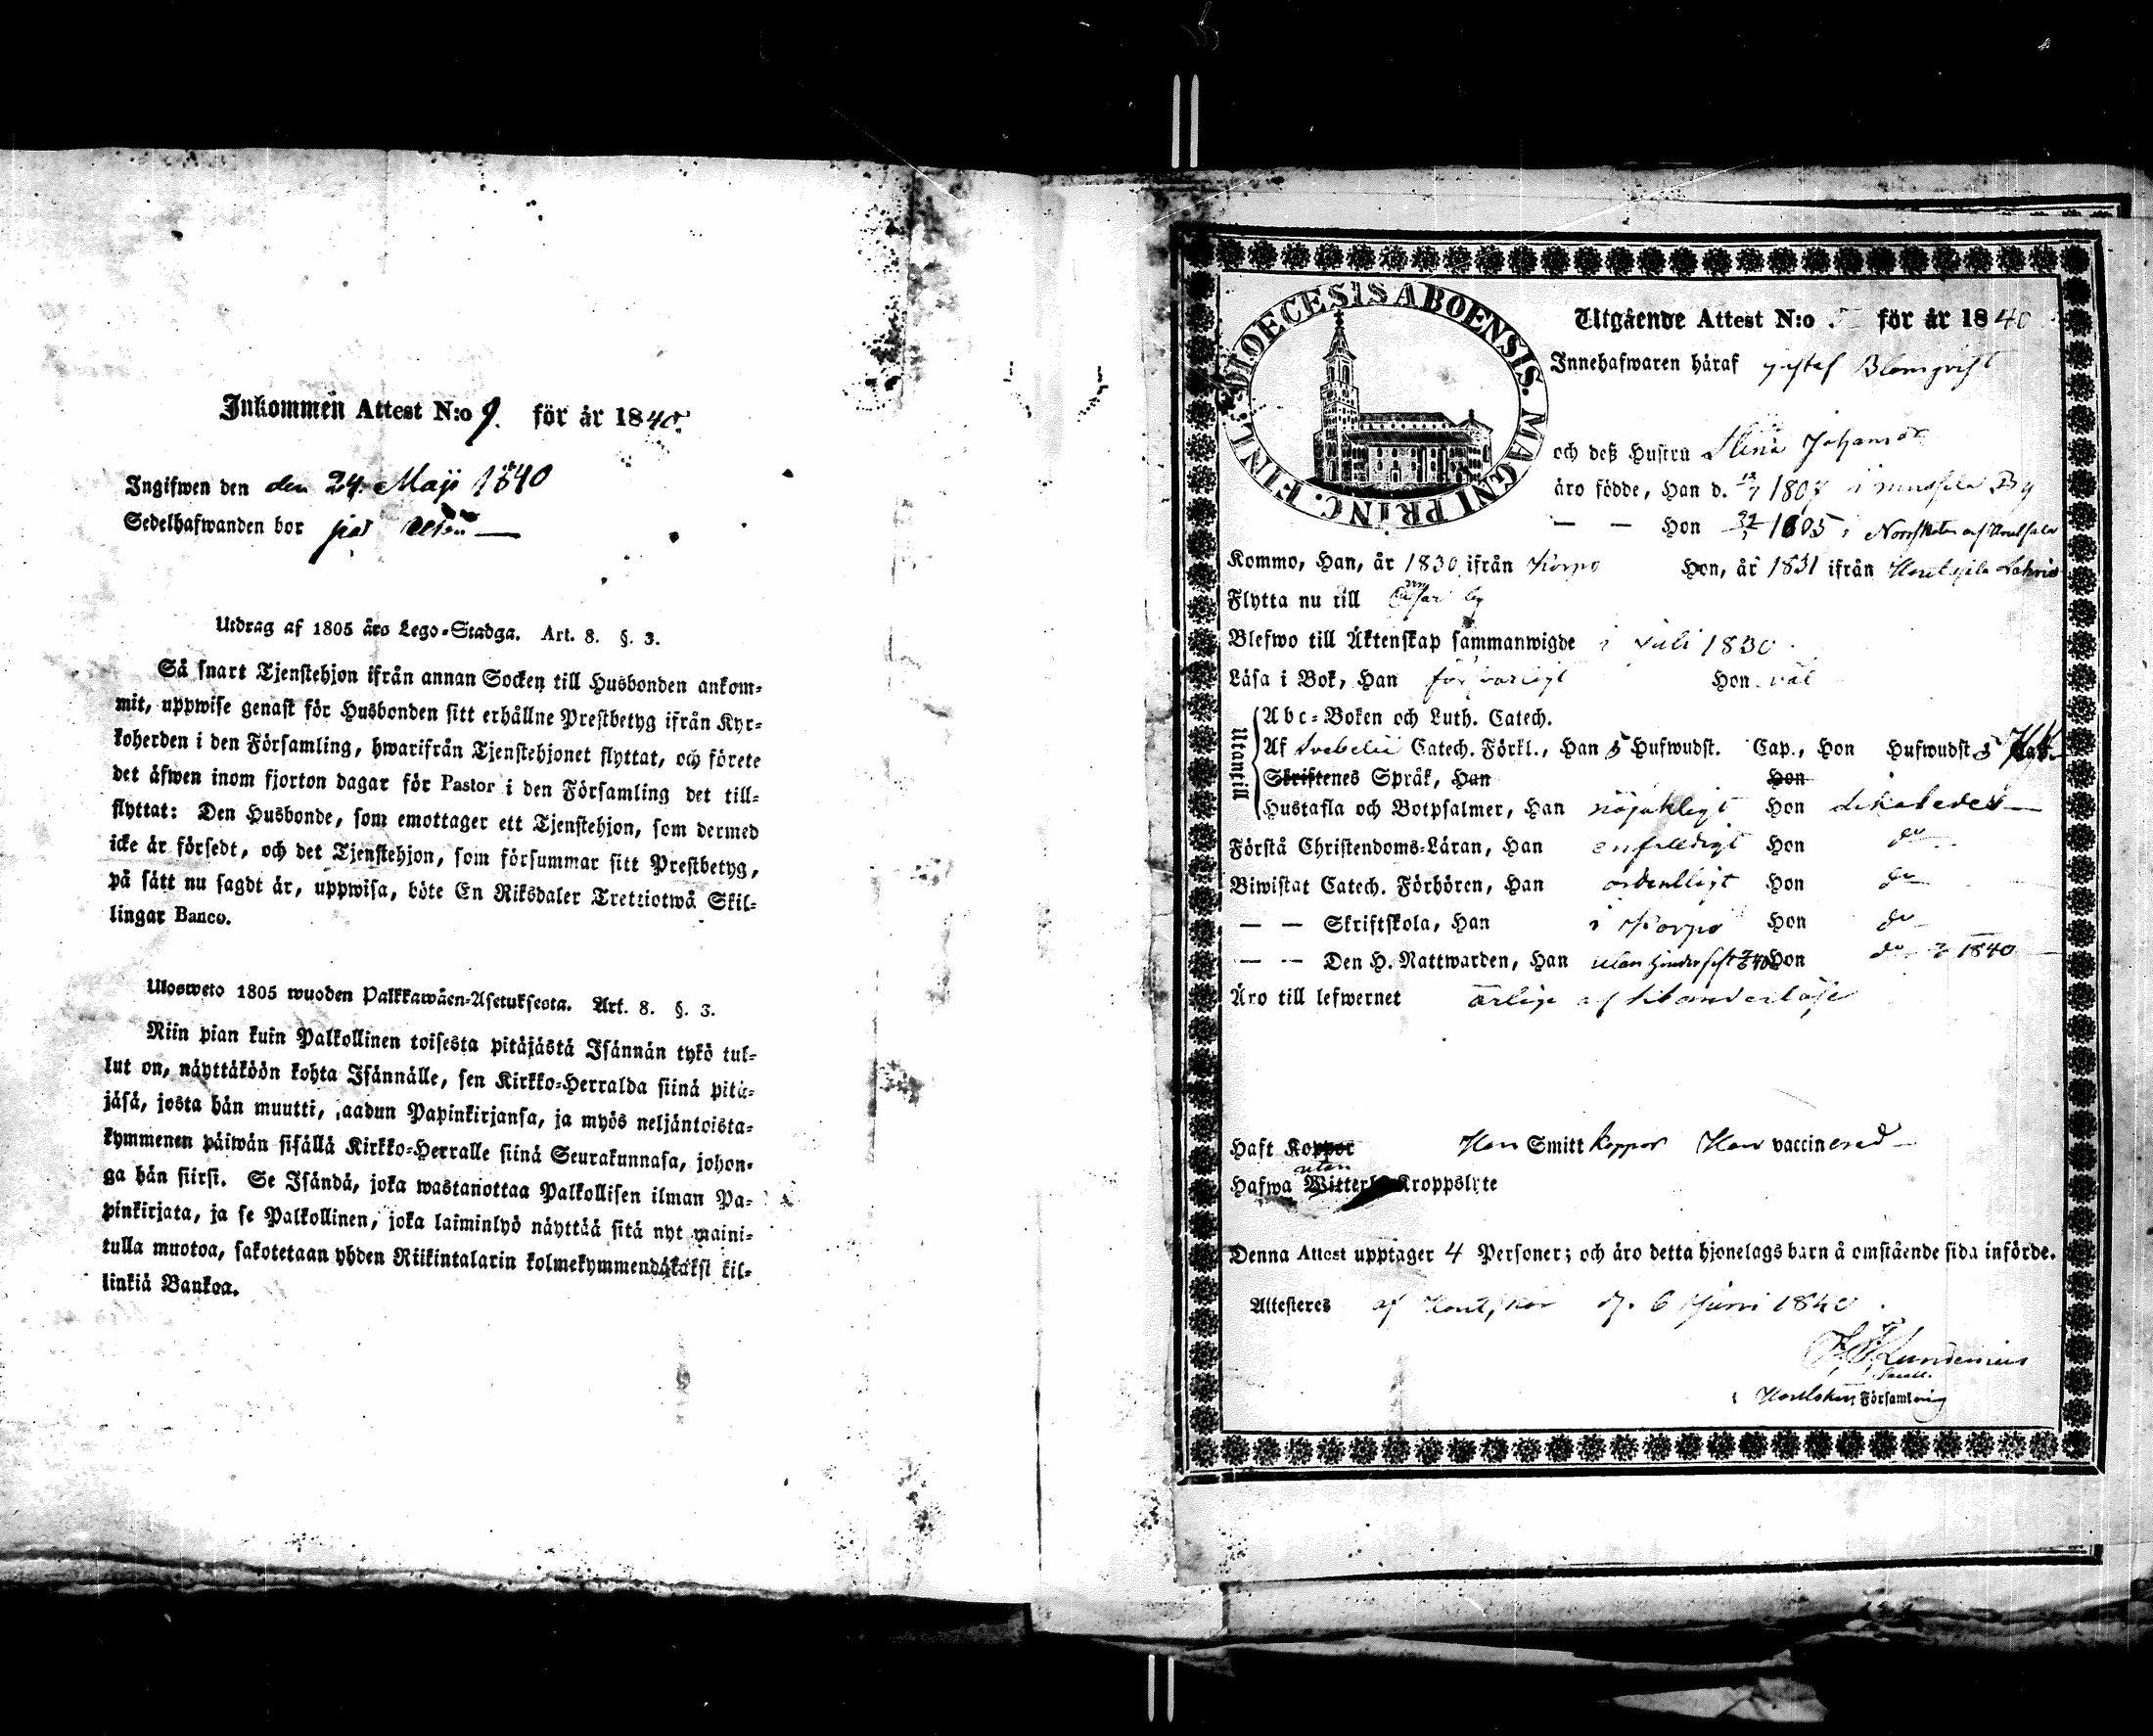 Inkommen Attest N:o 9. för år 1840.
Ingifwen den den 24. Maji 1840
Sedelhafwanden bor på
Utdrag af 1805 års Lego-Stadga. Art. 8. §. 3.
Så snart Tjenstehjon ifrån annan Socken till Husbonden ankom-
mit, uppwise genast för Husbonden sitt erhållne Prestbetyg ifrån Kyr-
koherden i den Församling, hwarifrån Tjenstehjonet flyttat, och förete
det äfwen inom fjorton dagar för Pastor i den Församling det till-
flyttat: Den Husbonde, som emottager ett Tjenstehjon, som dermed
icke är försedt, och det Tjenstehjon, som försummar sitt Prestbetyg,
på sätt nu sagdt är, uppwisa, böte En Riksdaler Trettiotwå Skil-
lingar Banco.
Ulosweto 1805 wuoden Palkkawäen-Asetuksesta. Art. 8. §. 3.
Niin pian kuin Palkollinen toisesta pitäjästä Isännän tykö tul-
lut on, näyttäköön kohta Isännälle, sen Kirkko-Herralda siinä pitä-
jäsä, josta hän muutti, saadun Papinkirjansa, ja myös neljäntoista-
kymmenen päiwän sisällä Kirkko-Herralle siinä Seurakunnasa, johon-
ga hän siirsi. Se Isändä, joka wastanottaa Palkollisen ilman Pa-
pinkirjata, ja se Palkollinen, joka laiminlyö näyttää sitä nyt maini-
tulla muotoa, sakotetaan yhden Riikintalarin kolmekymmendäkaksi kil-
linkiä Bankoa.
DIOECESIS ABOENSIS. MAGNI PRINC. FINL.
Utgående Attest N:o för år 1840
Innehafwaren häraf Gustaf Blomqvist
och deß Hustru Stina Johansdr
äro födde, Han d. 1807 i By
— — Hon 1805 i
Kommo, Han, år 1830 ifrån Korpo Hon, år 1831 ifrån
Flytta nu till by
Blefwo till Äktenskap sammanwigde i Juli 1830.
Läsa i Bok, Han försvarligt Hon väl
Utantill
Abc-Boken och Luth. Catech.
Af Svebelii Catech. Förkl., Han 5 Hufwudst. Cap., Hon Hufwudst. 5
Skriftenes Språk, Han Hon
Hustafla och Botpsalmer, Han nöjaktigt Hon likaledes
Förstå Christendoms-Läran, Han enfaldigt Hon do
Biwistat Catech. Förhören, Han ordentligt Hon do
— — Skriftskola, Han i Korpo Hon do
— — Den H. Nattwarden, Han utan hinder sist Hon do 1840
Äro till lefwernet ärlige
Haft Koppor Han Smitt koppor Hon vaccinerad
utan
Hafwa Witterligt Kroppslyte
Denna Attest upptager 4 Personer; och äro detta hjonelags barn å omstående sida införde.
Attesteres af Houtskär d. 6 Juni 1840.
Lundenius
Sacell.
i Houtskärs Församling